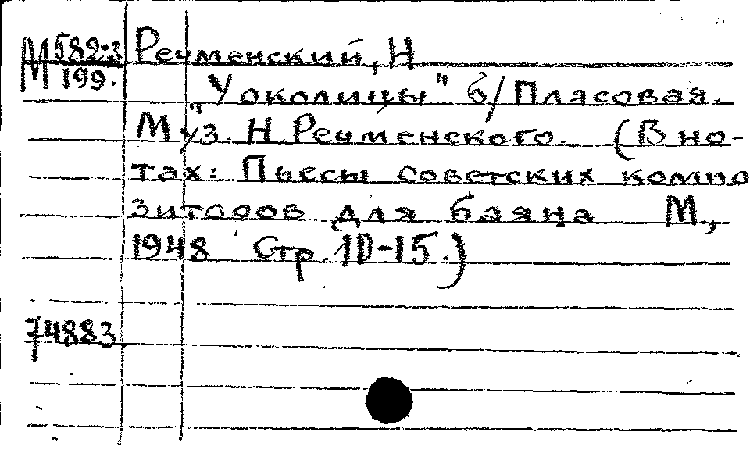 М 582-3 Речменский, Н
199. "У околицы" б/ Плясовая.
Муз. Н. Речменского. (В но-
тах: Пьесы советских компо
зиторов для баяна М.,
1948 Стр. 10-15.)
74883.